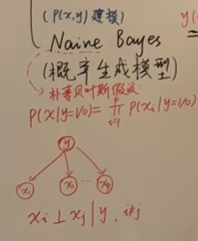 (P(x,y) 建模)
y(
Naive Bayes
(概率生成模型)
朴素贝叶斯假设:
P(x|y=1/0) = ∏ P(xi|y=1/0)
i=1
y
x1 xi xp
xi ⊥ xj | y, i≠j